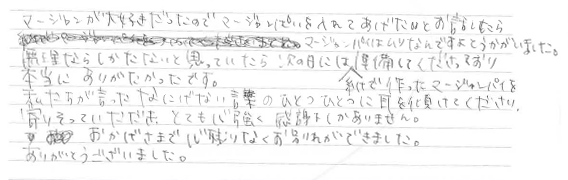 マージャンが大好きだったので マージャンぱいを入れてあげたいとお話したら
マージャンパイはムリなんですよとうかがいました。
無理ならしかたないと思っていたら 次の日には 準備してくださっており
本当に ありがたかったです。 紙で作ったマージャンパイを
私たちが言った なにげない言葉のひとつひとつに耳を傾けてくださり
寄りそっていただき とても心強く 感謝しかありません。
おかげさまで 心残りなくお別れができました。
ありがとうございました。